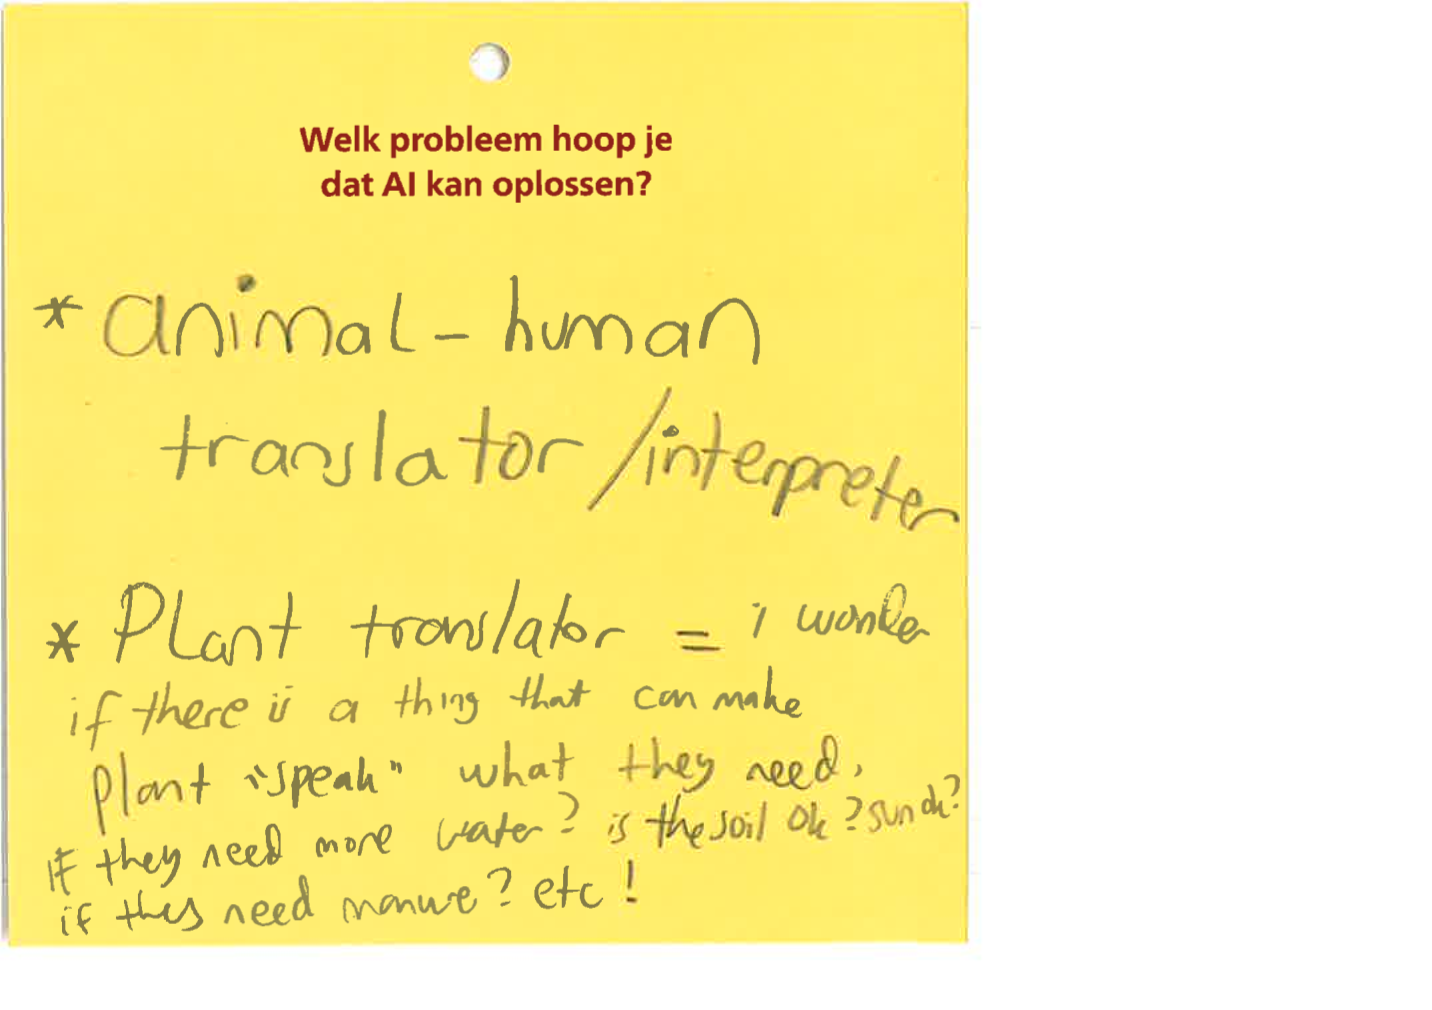 Welk probleem hoop je
dat AI kan oplossen?
* animal - human
translator / interpreter
* Plant translator = i wonder
if there is a thing that can make
plant "speak" what they need,
If they need more water? is the soil ok? sun ok?
if they need manure? etc!